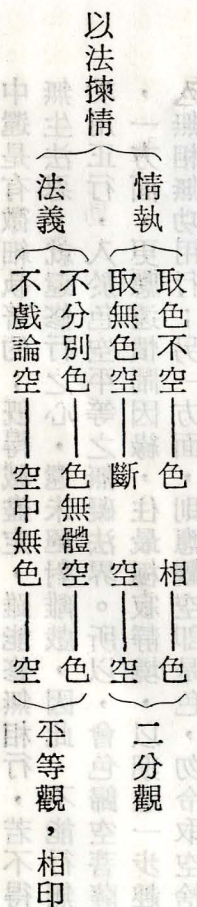 以法揀情
情執
取色不空——色相——色
取無色空——斷空——空
二分觀
法義
不分別色——色無體空——色
不戲論空——空中無色——空
平等觀，相印